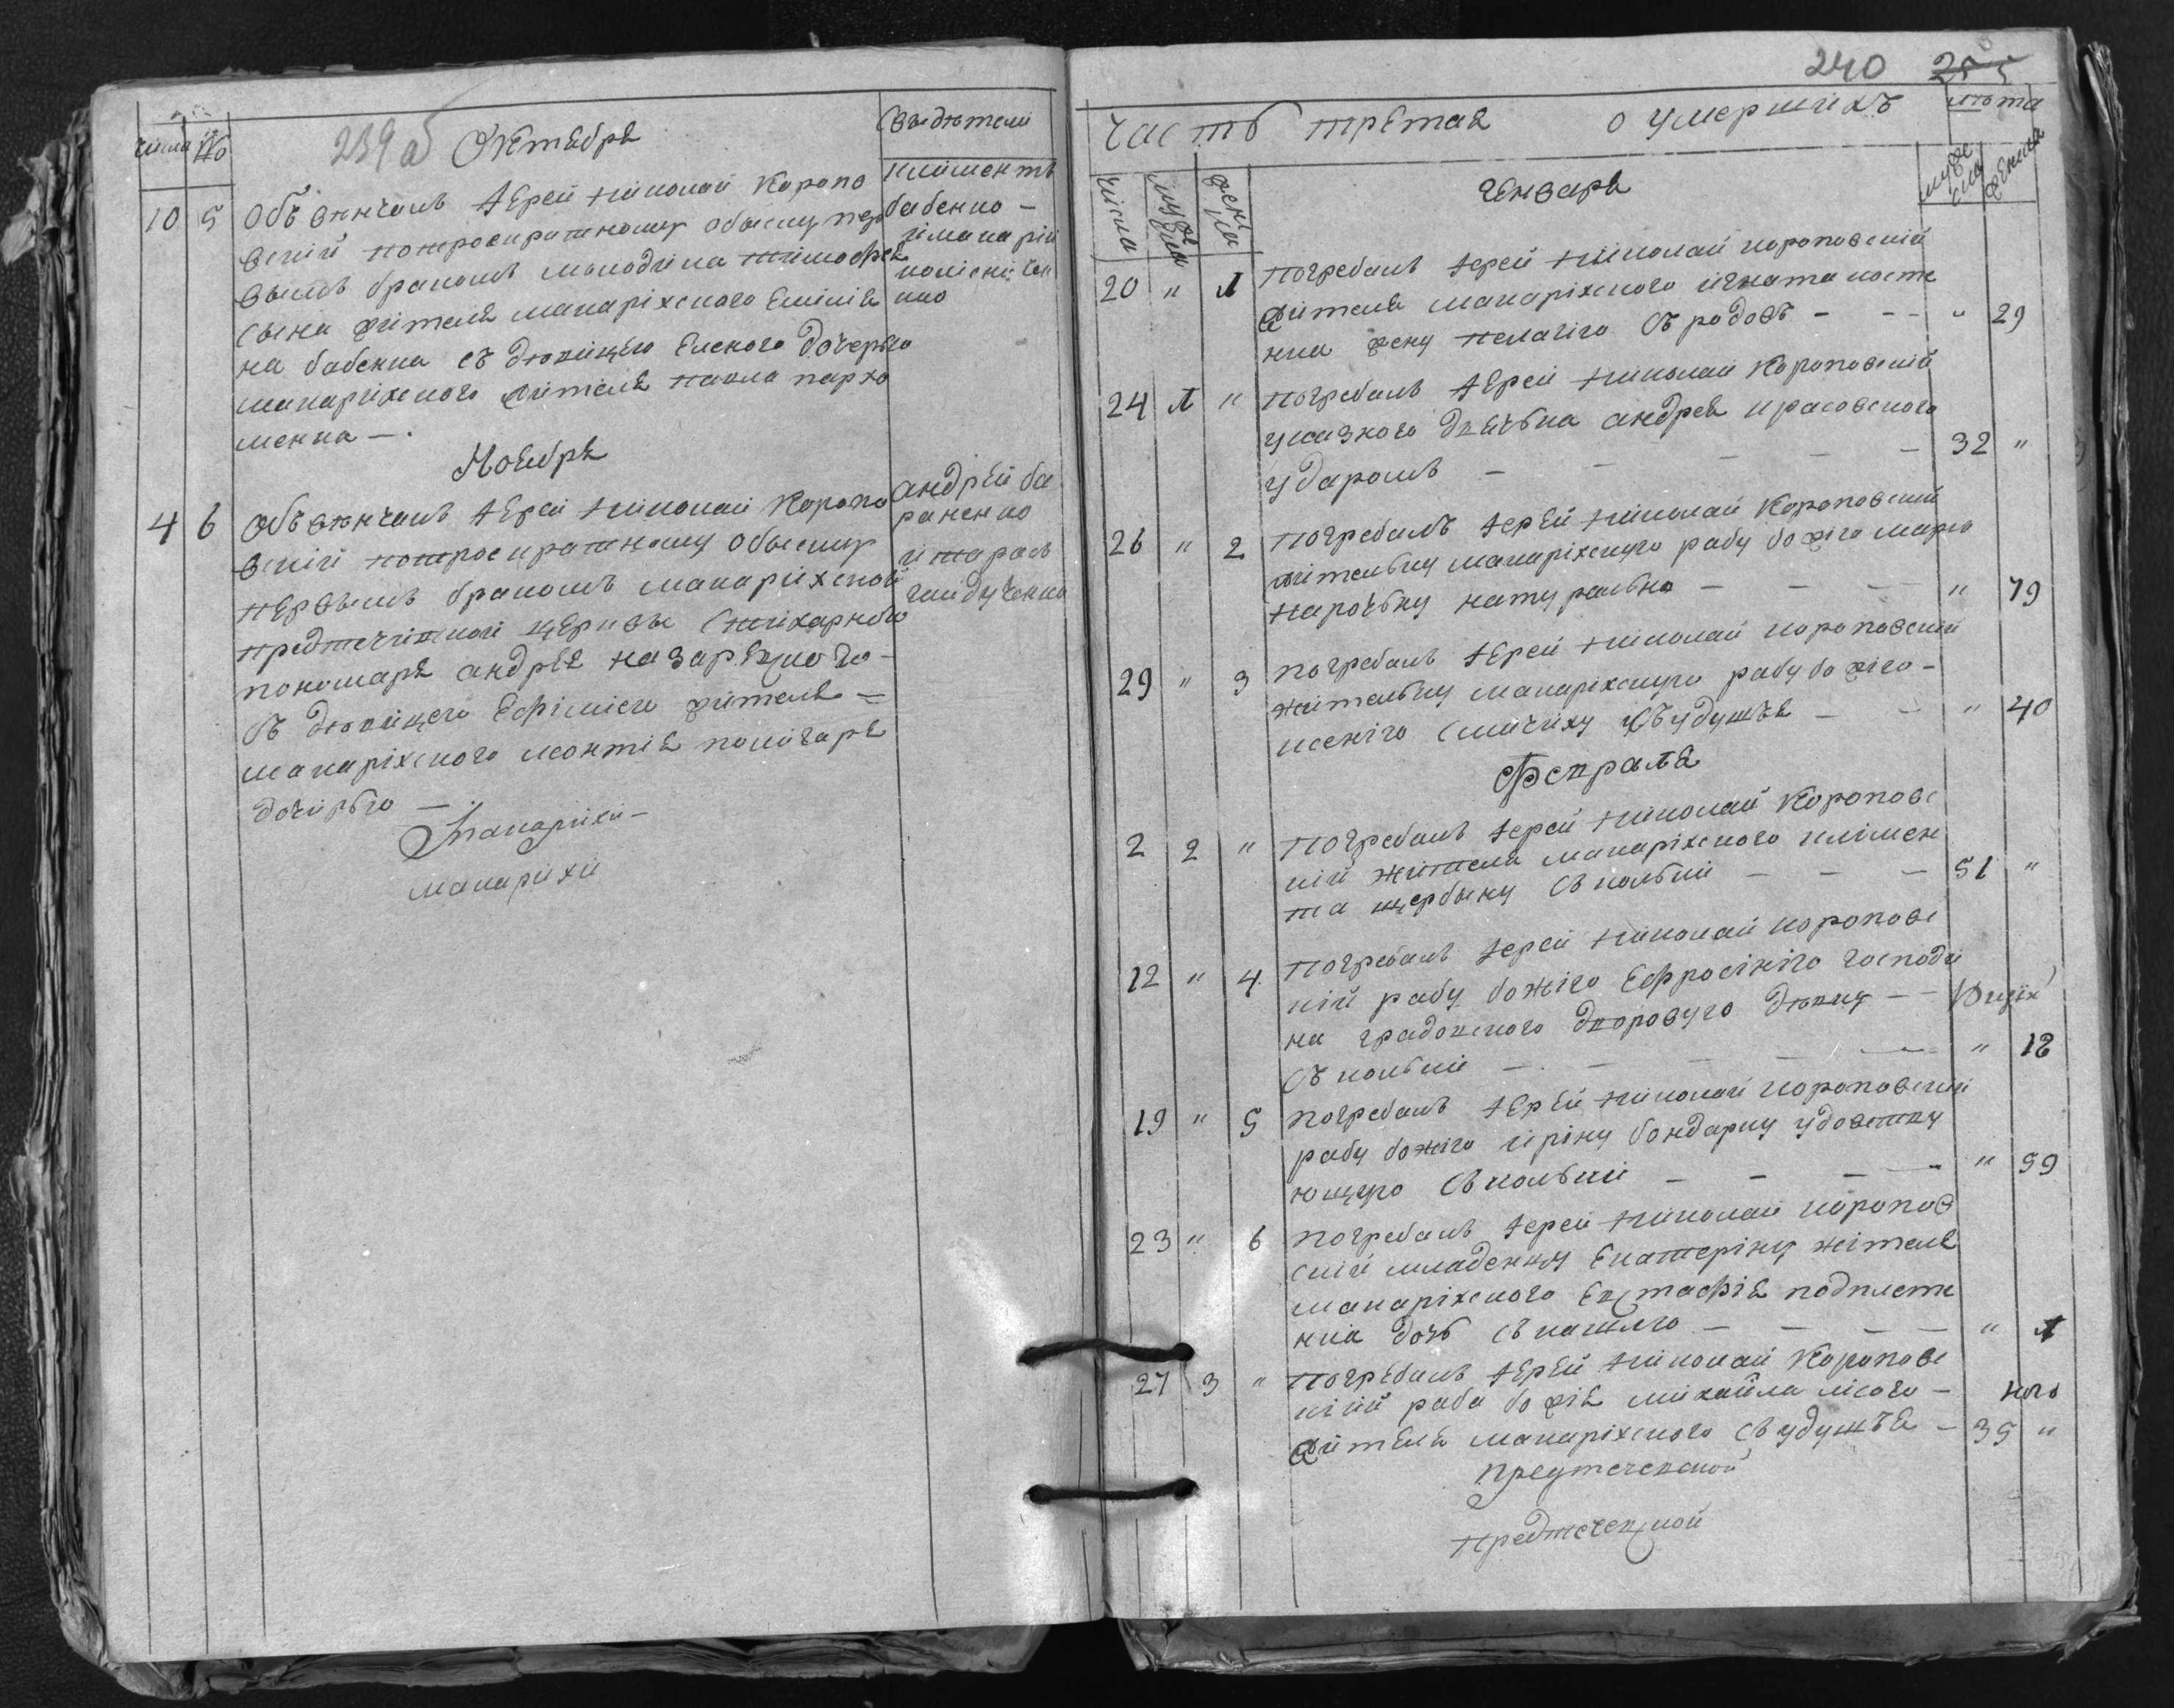 239 а
числа
№
Октября
Свидѣтели
10 5 Обвѣнчалъ Іерей Николай Коропо
вскій потроекратному обыску пер
вымъ бракомъ молодика Тимофея
сына жителя макаріхского
на бабенка съ дѣвицею дочерью
макаріхского жителя павла пархо
менка —.
Климентъ
бабенко —
имакарій
Ноября
4 6 Обвѣнчалъ Іерей Николай Коропо
вскій потроекратному обыску
первымъ бракомъ макаріхской
предтечинской церквы стихарного
пономаря андрея назаревского —
съ дѣвицею Ефіміею жителя =
макаріхского леонтія
дочерью —.
андрей ба
раненко
итарасъ
Макаріхи —
макаріхи
240 255
Часть третая о умершихъ
лѣта
числа
мужеска
женска
Генваря
мужеска
женска
20 " 1 Погребалъ Іерей Николай короповскій
жителя макаріхского игната косте
нка жену пелагію съ родовъ — — — " 29
24 1 " Погребалъ Іерей Николай Короповскій
указного дьячька андрея красовского
ударомъ — — — — — 32 "
26 " 2 Погребалъ Іерей Николай Короповскій
жительку макаріхскую рабу божію марю
натурально — — — " 79
29 " 3 Погребалъ Іерей Николай короповскій
жительку макаріхскую рабу божію —
ксенію съудушья — — " 40
Февраля
2 2 " Погребалъ Іерей Николай Короповс
кій жителя макаріхского клімен
та щербыну съ кольки — — — 51 "
12 " 4. Погребалъ Іерей Николай коропове
кій рабу божію Ефросінію господи
на градовского дворовую дѣвку — —
съ кольки — — — — " 18
19 " 5 Погребалъ Іерей Николай короповскій
рабу божію ірину бондарку удовству
ющую съ кольки — — — — " 59
23 " 6 Погребалъ Іерей Николай коропов
скій младенку Екатеріну жителя
макаріхского Евстафія подплете
нка дочь съ кашлю — — — — " 1
27 3 " Погребалъ Іерей Николай Коропове
кій раба божія михайла лісого —
жителя макаріхского съ удушья — 35 "
предтечевской
предтечевской